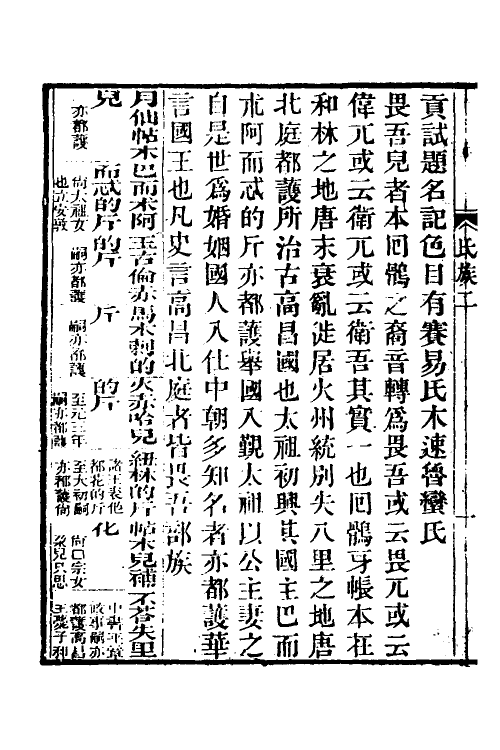 貢試題名記色目有賽易氏木速魯蠻氏
畏吾兒者本回鶻之裔音轉爲畏吾或云畏兀或云
偉兀或云衛兀或云衛吾其實一也回鶻牙帳本在
和林之地唐末衰亂徙居火州統別失八里之地唐
北庭都護所治古高昌國也太祖初興其國主巴而
朮阿而忒的斤亦都護舉國入覲太祖以公主妻之
自是世爲婚姻國人入仕中朝多知名者亦都護華
言國王也凡史言高昌北庭者皆畏吾部族
月仙帖木巴而朮阿玉古倫赤馬木剌的火赤哈兒紐林的斤帖木兒補不荅失里
兒 而忒的斤的斤 斤 的斤 化
亦都護 尚太祖女也立安敦 嗣亦都護 嗣亦都護 至元三年嗣亦都護
氏族二